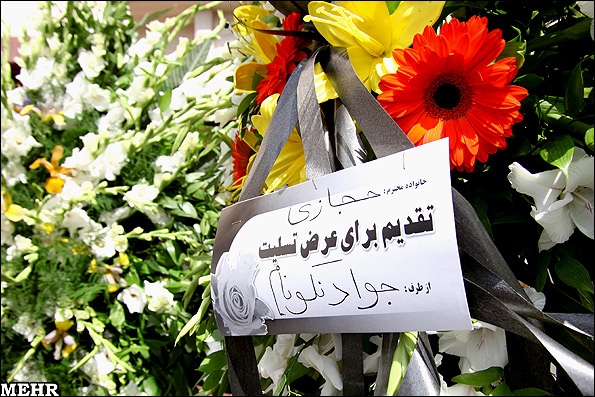 خانواده محترم: حجازی
تقدیم برای عرض تسلیت
از طرف: جواد نکونام
MEHR